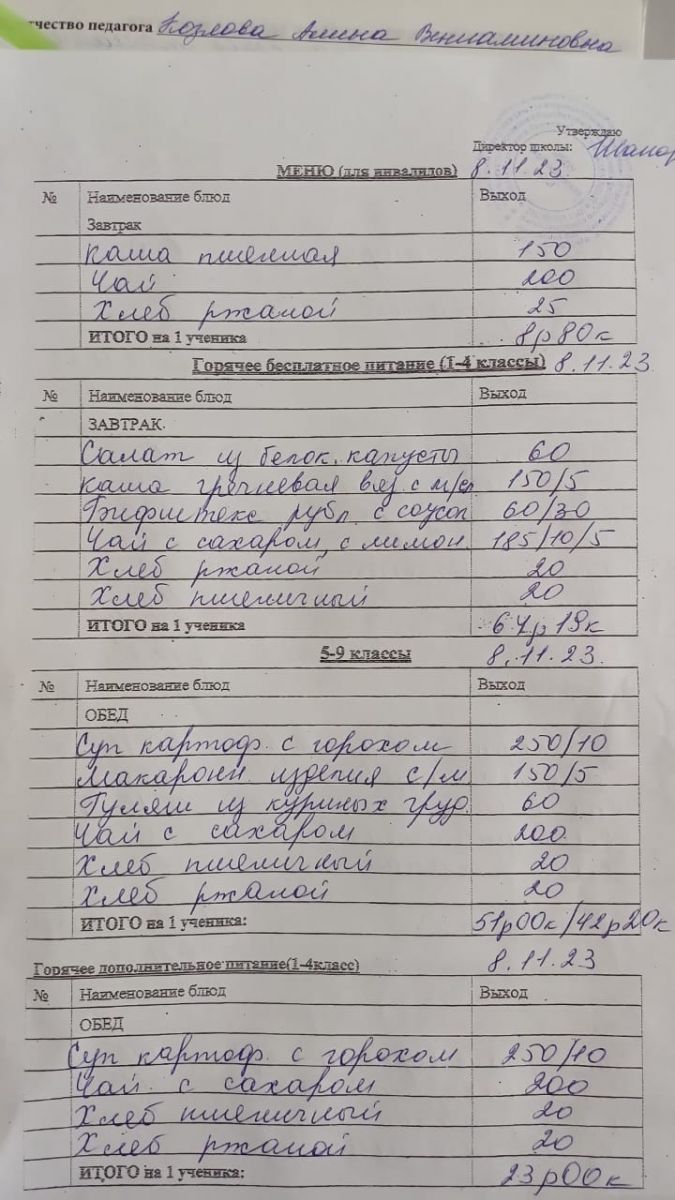 чество педагога Козлова Алина Вениаминовна
Утверждаю
Директор школы:
МЕНЮ (для инвалидов) 8.11.23
№ Наименование блюд Выход
Завтрак
каша пшенная 150
Чай 200
Хлеб ржаной 25
ИТОГО на 1 ученика 8р80к
Горячее бесплатное питание (1-4 классы) 8.11.23
№ Наименование блюд Выход
ЗАВТРАК
Салат из белок. капусты 60
каша гречневая вяз с м/сл 150/5
Бифштекс рубл. с соусом 60/30
Чай с сахаром, с лимон. 185/10/5
Хлеб ржаной 20
Хлеб пшеничный 20
ИТОГО на 1 ученика 67р19к
5-9 классы 8.11.23.
№ Наименование блюд Выход
ОБЕД
Суп картоф. с горохом 250/10
Макарони изделия с/м 150/5
Гуляш из куриных груд. 60
Чай с сахаром 200
Хлеб пшеничный 20
Хлеб ржаной 20
ИТОГО на 1 ученика: 51р00к/42р20к
Горячее дополнительное питание(1-4класс) 8.11.23
№ Наименование блюд Выход
ОБЕД
Суп картоф. с горохом 250/10
Чай с сахаром 200
Хлеб пшеничный 20
Хлеб ржаной 20
ИТОГО на 1 ученика: 23р00к